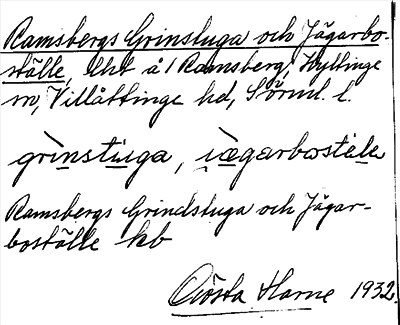 Ramsbergs Grinstuga och Jägarbo-
ställe, lht å 1 Ramsberg, Hyltinge
sn, Villåttinge hd, Sörml. l.
grinstuga, jægarbostele
Ramsbergs Grindstuga och Jägar-
boställe kb
Gösta Harne 1932.